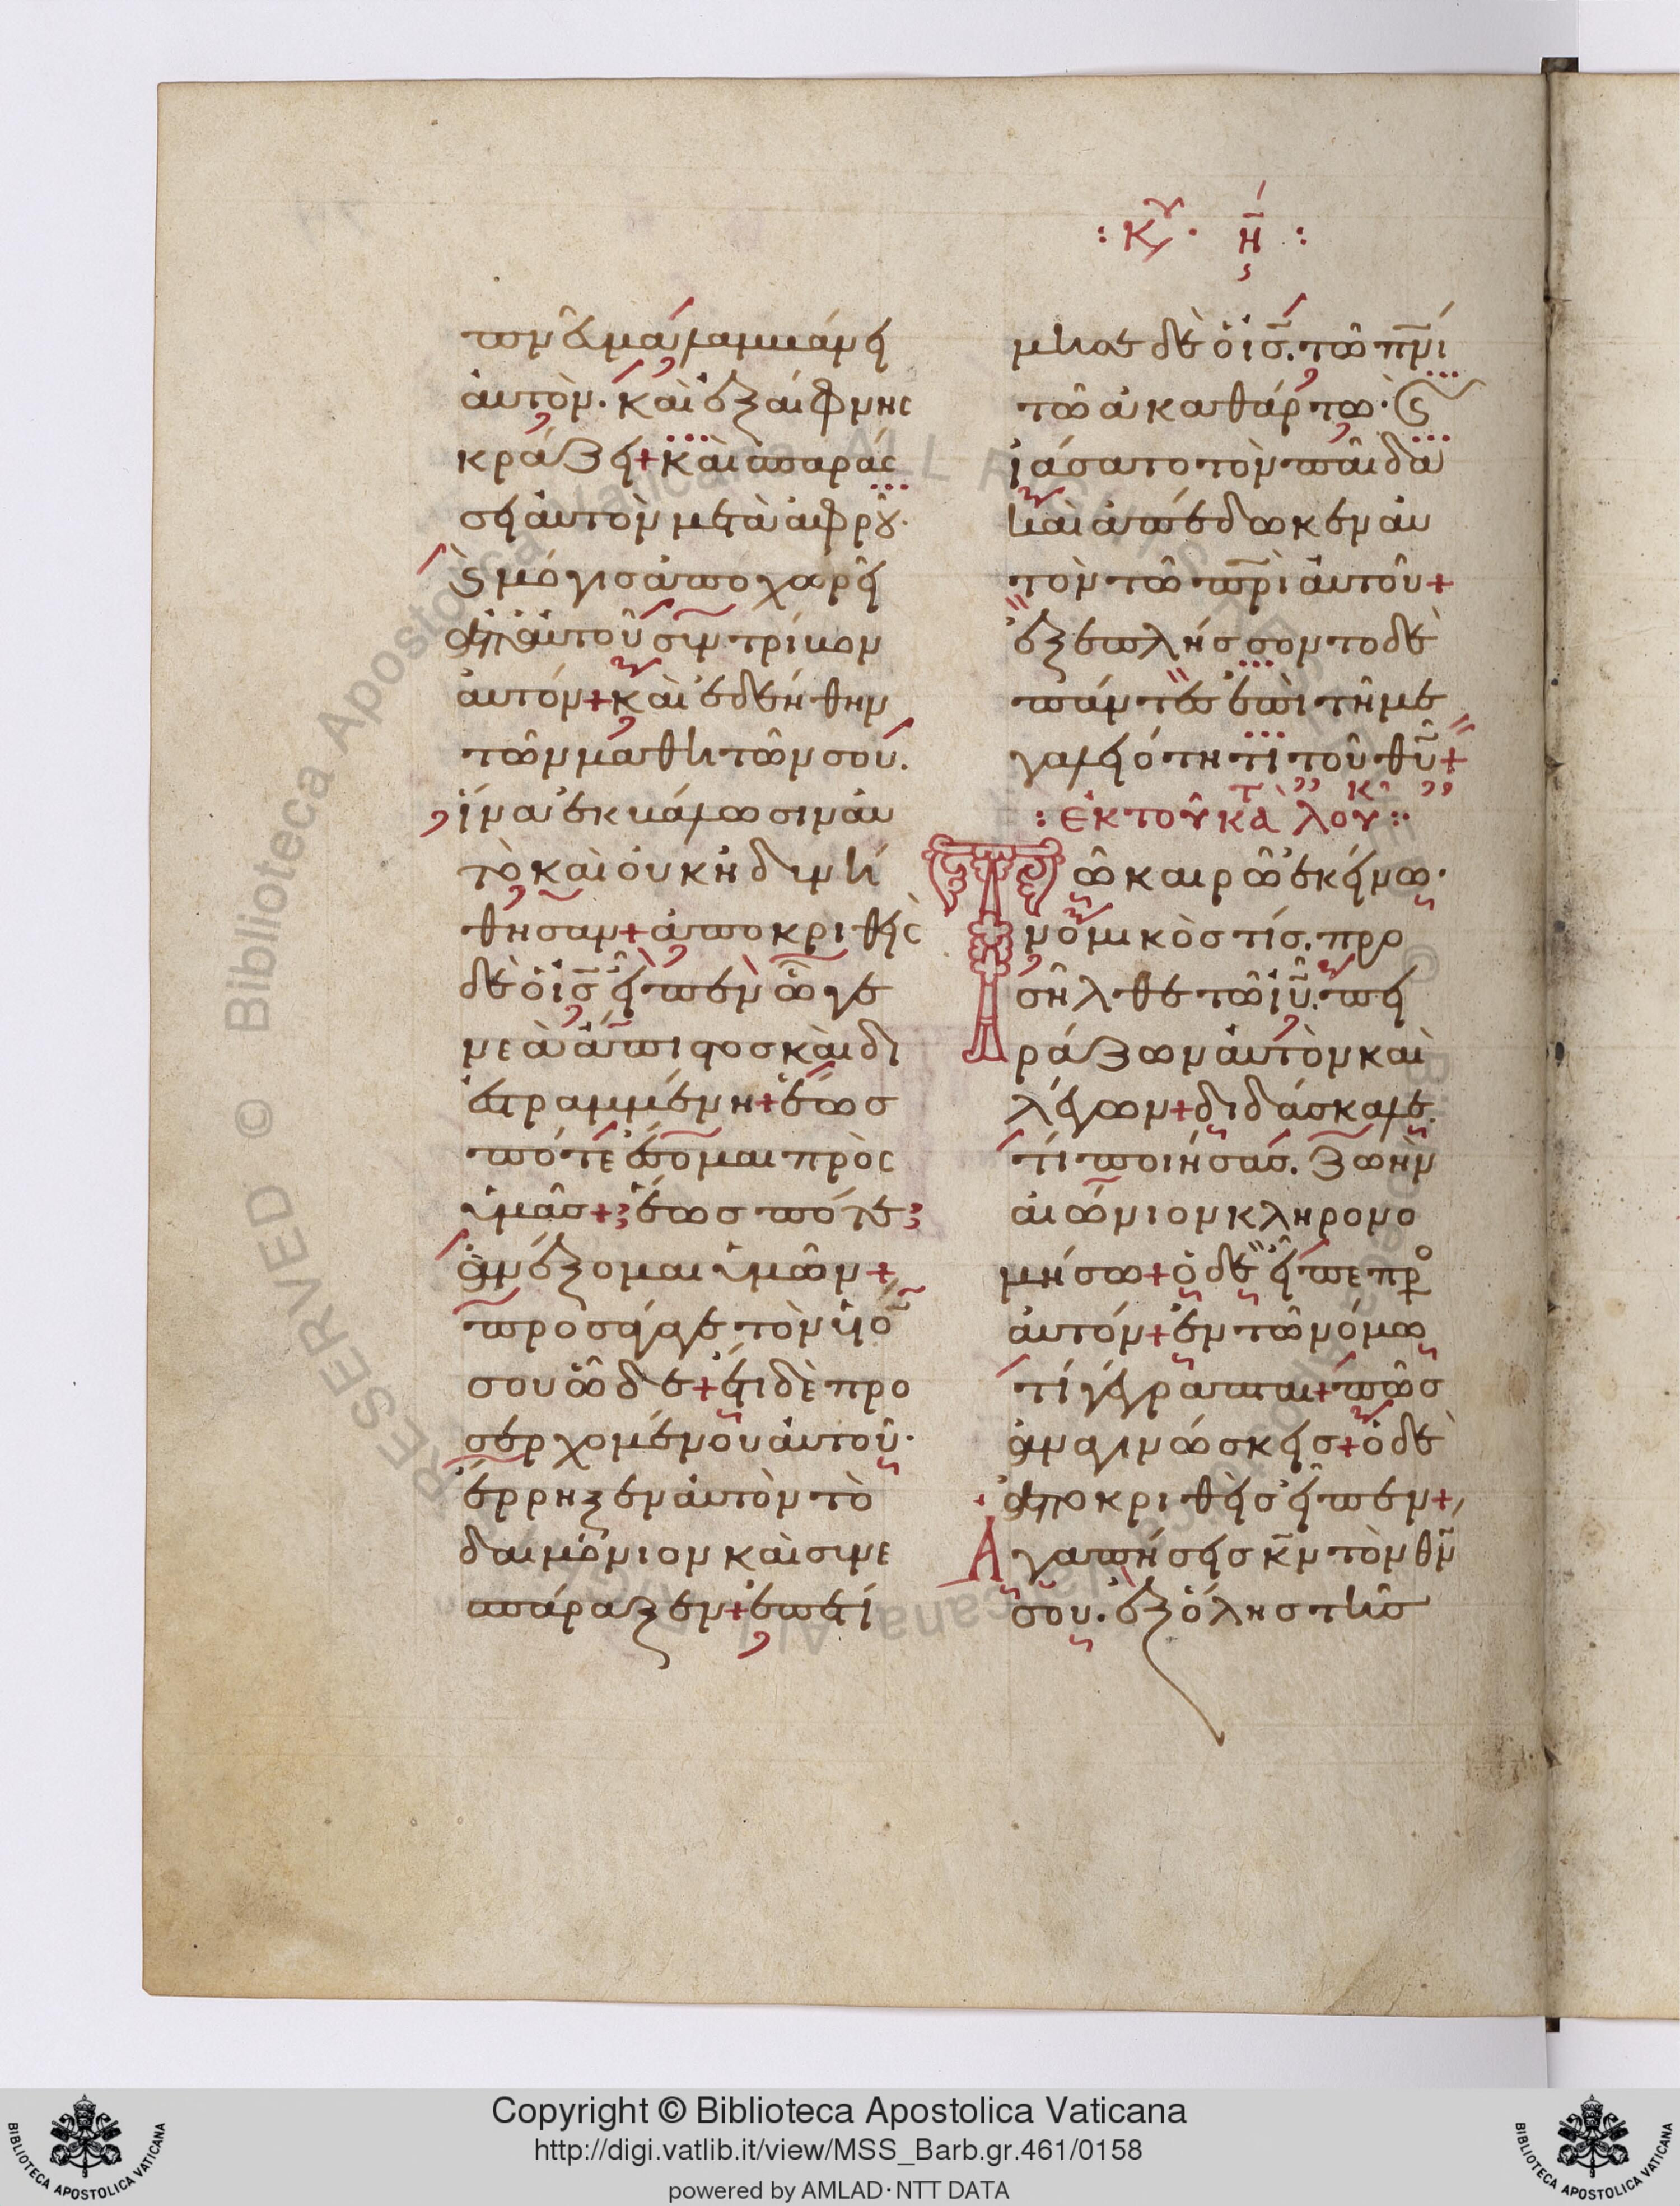 : Κυ · η :
πνᾶ λαμβάνει
ἀυτὸν· καὶ ἐξαίφνης
κράζει + καὶ σπαράσ
σει ἀυτὸν μετὰ ἀφροῦ·
καὶ μόγισ ἀποχωρεῖ
ἀπ' ἀυτοῦ συντρίβον
ἀυτόν + καὶ ἐδεήθην
τῶν μαθητῶν σου.
ἵνα ἐκβάλωσιν ἀυ
τὸ καὶ οὐκ ἠδυνή
θησαν + ἀποκριθεὶς
δὲ ὁ ἰς εἶπεν ὦ γε
νεὰ ἄπιστος καὶ δι
εστραμμένη + ἕως
πότε ἔσομαι πρὸς
ὑμᾶσ + ἕωσ πότε
ἀνέξομαι ὑμῶν +
προσάγαγε τὸν υἱό
σου ὧδε + ἔτι δὲ προ
σερχομένου ἀυτοῦ·
ἔρρηξεν ἀυτὸν τὸ
δαιμόνιον καὶ συνε
σπάραξεν + ἐπετί
μησε δὲ ὁ ἰς. τῶ πνι
τῶ ἀκαθάρτω· καὶ
ἰάσατο τὸν παῖδα
καὶ ἀπέδωκεν ἀυ
τὸν τῶ πρὶ ἀυτοῦ +
ἐξεπλήσσοντο δὲ
πάντεσ ἐπὶ τῆ με
γαλειότητι τοῦ θυ +
: ἐκ τοῦ κατὰ λουκ :
Τῶ καιρῶ ἐκείνω·
νομικὸσ τίσ. προ
σῆλθε τῶ ιυ. πει
ράζων ἀυτὸν καὶ
λέγων + διδάσκαλε.
τί ποιήσασ. ζωὴν
αἰώνιον κληρονο
μήσω + ὁ δὲ εἶπε πρ
ἀυτόν + ἐν τῶ νόμω
τί γέγραπται + πῶσ
ἀναγινώσκεισ + ὁ δὲ
ἀποκριθεὶσ εἶπεν +
Ἀγαπήσεισ κν τὸν θν
σου. ἐξ ὅλησ τῆσ
Copyright © Biblioteca Apostolica Vaticana
http://digi.vatlib.it/view/MSS_Barb.gr.461/0158
powered by AMLAD·NTT DATA